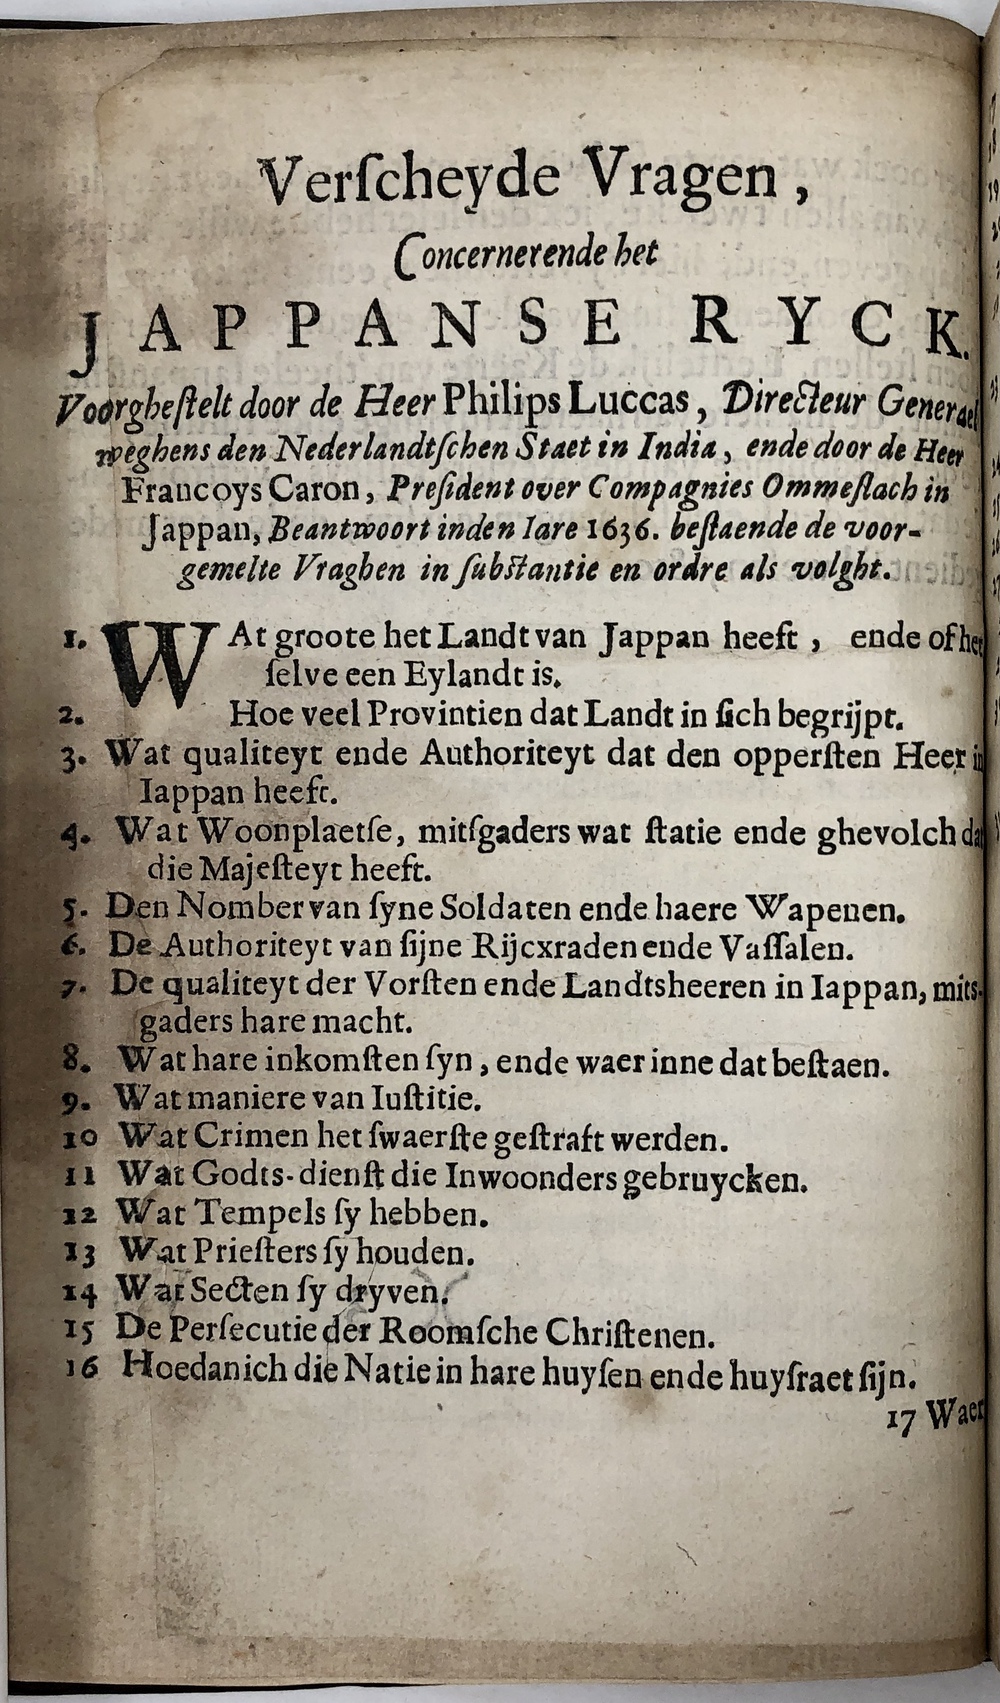 Verſcheyde Vragen,
Concernerende het
JAPPANSE RYCK.
Voorgheſtelt door de Heer Philips Luccas, Directeur Generael
weghens den Nederlandtſchen Staet in India, ende door de Heer
Francoys Caron, Preſident over Compagnies Ommeſlach in
Jappan, Beantwoort inden Iare 1636. beſtaende de voor-
gemelte Vraghen in ſubſtantie en ordre als volght.
1. WAt groote het Landt van Jappan heeft, ende of het
ſelve een Eylandt is.
2. Hoe veel Provintien dat Landt in ſich begrijpt.
3. Wat qualiteyt ende Authoriteyt dat den opperſten Heer in
Iappan heeft.
4. Wat Woonplaetſe, mitſgaders wat ſtatie ende ghevolch dat
die Majeſteyt heeft.
5. Den Nomber van ſyne Soldaten ende haere Wapenen.
6. De Authoriteyt van ſijne Rijcxraden ende Vaſſalen.
7. De qualiteyt der Vorſten ende Landtsheeren in Iappan, mits-
gaders hare macht.
8. Wat hare inkomſten ſyn, ende waer inne dat beſtaen.
9. Wat maniere van Iuſtitie.
10 Wat Crimen het ſwaerſte geſtraft werden.
11 Wat Godts-dienſt die Inwoonders gebruycken.
12 Wat Tempels ſy hebben.
13 Wat Prieſters ſy houden.
14 Wat Secten ſy dryven.
15 De Perſecutie der Roomſche Chriſtenen.
16 Hoedanich die Natie in hare huyſen ende huyſraet ſijn.
17 Waer